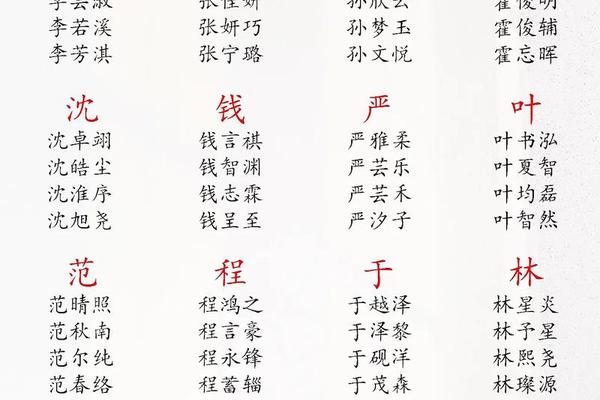 李若溪 张妍巧 孙梦玉 霍俊辅
李芳淇 张宁璐 孙文悦 霍忘晖
沈 钱 严 叶
沈卓翊 钱言祺 严雅柔 叶书泓
沈皓尘 钱智渊 严芸乐 叶夏智
沈淮序 钱志霖 严芸禾 叶均磊
沈旭尧 钱呈至 严汐子 叶智然
范 程 于 林
范晴照 程鸿之 于越泽 林星炎
范秋南 程言豪 于泽黎 林予星
范尔纯 程永锋 于砚洋 林熙尧
范春络 程蓄辎 于茂森 林璨源